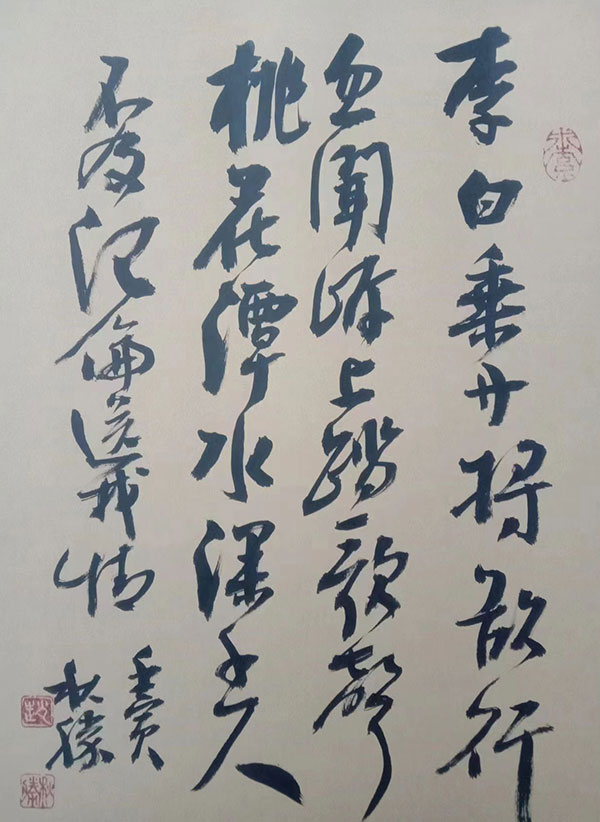 李白乘舟将欲行
忽闻岸上踏歌声
桃花潭水深千尺
不及汪伦送我情
壬寅
秋滕